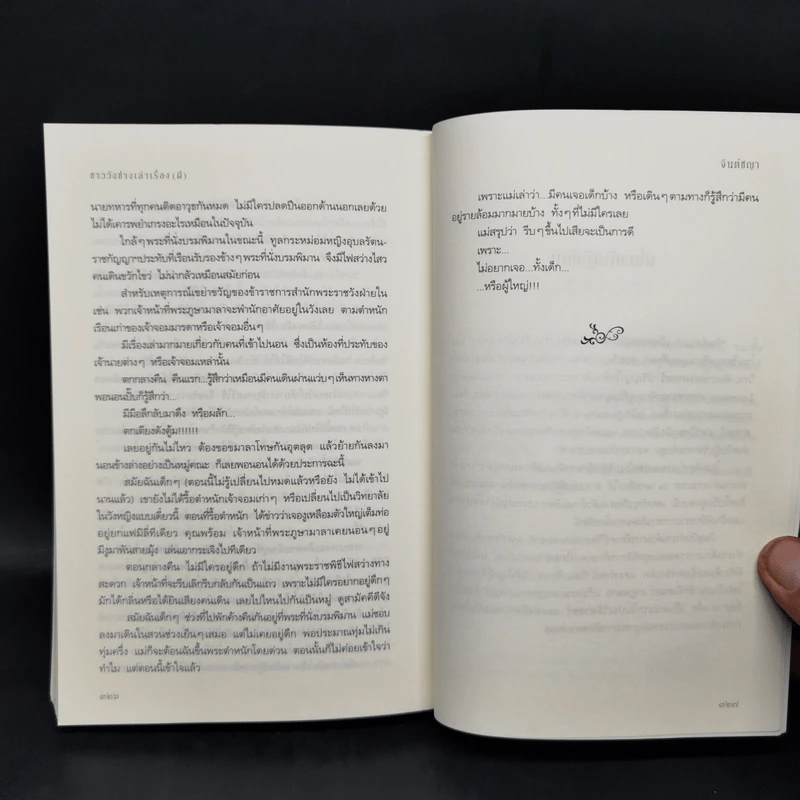 ชาววังช่างเล่าเรื่อง (ผี)
นายทหารที่ทุกคนติดอาวุธกันหมด ไม่มีใครปลดปืนออกด้านนอกเลยด้วย
ไม่ได้เคารพยำเกรงอะไรเหมือนในปัจจุบัน
ใกล้ๆ พระที่นั่งบรมพิมานในขณะนี้ ทูลกระหม่อมหญิงอุบลรัตน-
ราชกัญญาฯประทับที่เรือนรับรองข้างๆ พระที่นั่งบรมพิมาน จึงมีไฟสว่างไสว
คนเดินขวักไขว่ ไม่น่ากลัวเหมือนสมัยก่อน
สำหรับเหตุการณ์เขย่าขวัญของข้าราชการสำนักพระราชวังฝ่ายใน
เช่น พวกเจ้าหน้าที่พระภูษามาลาจะพำนักอาศัยอยู่ในวังเลย ตามตำหนัก
เรือนเก่าของเจ้าจอมมารดาหรือเจ้าจอมอื่นๆ
มีเรื่องเล่ามากมายเกี่ยวกับคนที่เข้าไปนอน ซึ่งเป็นห้องที่ประทับของ
เจ้านายต่างๆ หรือเจ้าจอมเหล่านั้น
ตกกลางคืน คืนแรก...รู้สึกว่าเหมือนมีคนเดินผ่านแว่บๆ เห็นทางหางตา
พอนอนปั๊บก็รู้สึกว่า...
มีมือลึกลับมาดึง หรือผลัก...
ตกเตียงดังตุ้ม!!!!!!
เลยอยู่กันไม่ไหว ต้องขอขมาลาโทษกันอุตลุด แล้วย้ายกันลงมา
นอนข้างล่างอย่างเป็นหมู่คณะ ก็เลยพอนอนได้ด้วยประการฉะนี้
สมัยฉันเด็กๆ (ตอนนี้ไม่รู้เปลี่ยนไปหมดแล้วหรือยัง ไม่ได้เข้าไป
นานแล้ว) เขายังไม่ได้รื้อตำหนักเจ้าจอมเก่าๆ หรือเปลี่ยนไปเป็นวิทยาลัย
ในวังหญิงแบบเดี๋ยวนี้ ตอนที่รื้อตำหนัก ได้ข่าวว่าเจองูเหลือมตัวใหญ่เต็มท่อ
อยู่ยกแฟมิลี่ทีเดียว คุณพร้อม เจ้าหน้าที่พระภูษามาลาเคยนอนๆ อยู่
มีงูมาพันสายมุ้ง เล่นเอากระเจิงไปทีเดียว
ตอนกลางคืน ไม่มีใครอยู่ดึก ถ้าไม่มีงานพระราชพิธีไฟสว่างทาง
สะดวก เจ้าหน้าที่จะรีบเลิกรีบกลับกันเป็นแถว เพราะไม่มีใครอยากอยู่ดึกๆ
มักได้กลิ่นหรือได้ยินเสียงคนเดิน เลยไปไหนไปกันเป็นหมู่ ดูสามัคคีดีจัง
สมัยฉันเด็กๆ ช่วงที่ไปพักค้างคืนกันอยู่ที่พระที่นั่งบรมพิมาน แม่ชอบ
ลงมาเดินในสวนช่วงเย็นๆ เสมอ แต่ไม่เคยอยู่ดึก พอประมาณทุ่มไม่เกิน
ทุ่มครึ่ง แม่ก็จะต้อนฉันขึ้นพระตำหนักโดยด่วน ตอนนั้นก็ไม่ค่อยเข้าใจว่า
ทำไม แต่ตอนนี้เข้าใจแล้ว
๓๒๖
จินต์ชญา
เพราะแม่เล่าว่า...มีคนเจอเด็กบ้าง หรือเดินๆ ตามทางก็รู้สึกว่ามีคน
อยู่รายล้อมมากมายบ้าง ทั้งๆ ที่ไม่มีใครเลย
แม่สรุปว่า รีบๆ ขึ้นไปเสียจะเป็นการดี
เพราะ...
ไม่อยากเจอ...ทั้งเด็ก...
...หรือผู้ใหญ่!!!
๓๒๗